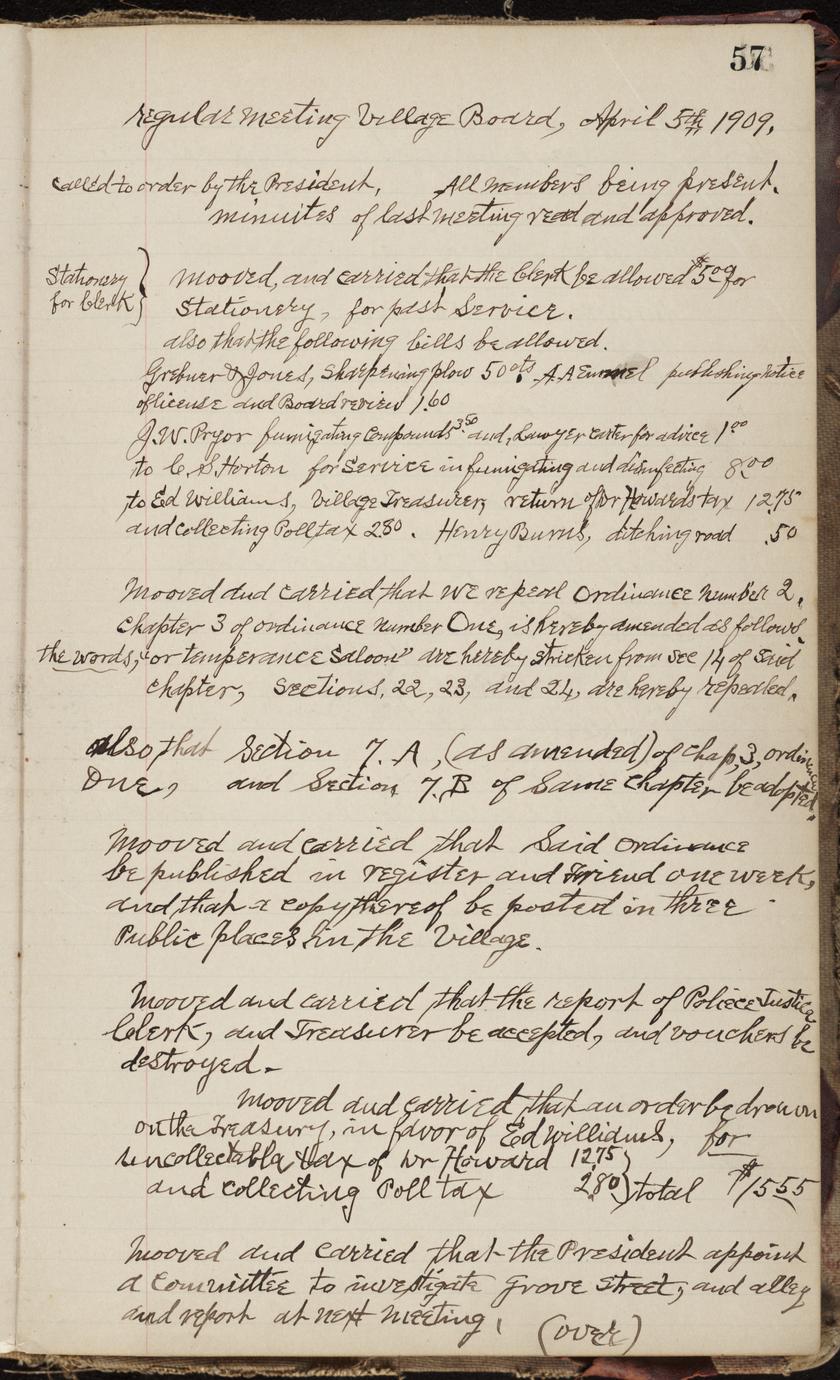 57
regular meeting Village Board, April 5th 1909.
called to order by the President, All members being present.
minuites of last meeting read and approved.
Stationery
for Clerk
mooved, and carried that the Clerk be allowed $5.00 for
Stationery, for past Service.
also that the following bills be allowed.
Grebner & Jones, Sharpening plow 50 cts. A.A. publishing notice
of license and Board review 1.60
J.W. Pryor fumigating compounds 3.50 and, Lawyer carter for advice 1.00
to C. S. Horton for Service in fumigating and disinfecting 8.00
to Ed Williams, Village Treasurer, return of Wr Howards tax 12.75
and collecting Poll tax 2.80. Henry Burns, ditching road .50
Mooved and carried that we repeal Ordinance number 2.
Chapter 3 of ordinance number One, is hereby amended as follows
the words, "or temperance Saloon" are hereby stricken from Sec 14 of Said
chapter, Sections, 22, 23, and 24, are hereby repealed.
also that Section 7. A, (as amended) of chap, 3, ordinance
One, and Section 7, B of Same chapter be adopted.
Mooved and carried that Said Ordinance
be published in register and Friend one week,
and that a copy thereof be posted in three
Public places in the Village.
Mooved and carried that the report of Poliece Justice
Clerk, and Treasurer be accepted, and vouchers be
destroyed.
Mooved and carried that an order be drawn
on the Treasury, in favor of Ed Williams, for
uncollectable tax of Wr Howard 12.75
and collecting Poll tax 2.80 } total $15.55
Mooved and carried that the President appoint
a Committee to investigate Grove Street, and alley
and report at next meeting. (over)